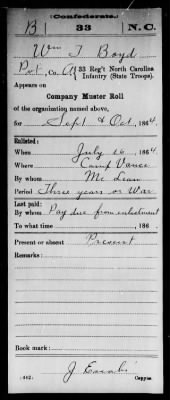 (Confederate.)
B 33 N.C.
Wm T Boyd
Pvt, Co. A, 33 Reg't North Carolina
Infantry (State Troops).
Appears on
Company Muster Roll
of the organization named above,
for Sept & Oct, 1864
Enlisted:
When July 16, 1864
Where Camp Vance
By whom Mc Lean
Period Three years or War
Last paid:
By whom Pay due from enlistment
To what time , 186
Present or absent Present
Remarks:
Book mark:
(642) J.
Copyist.